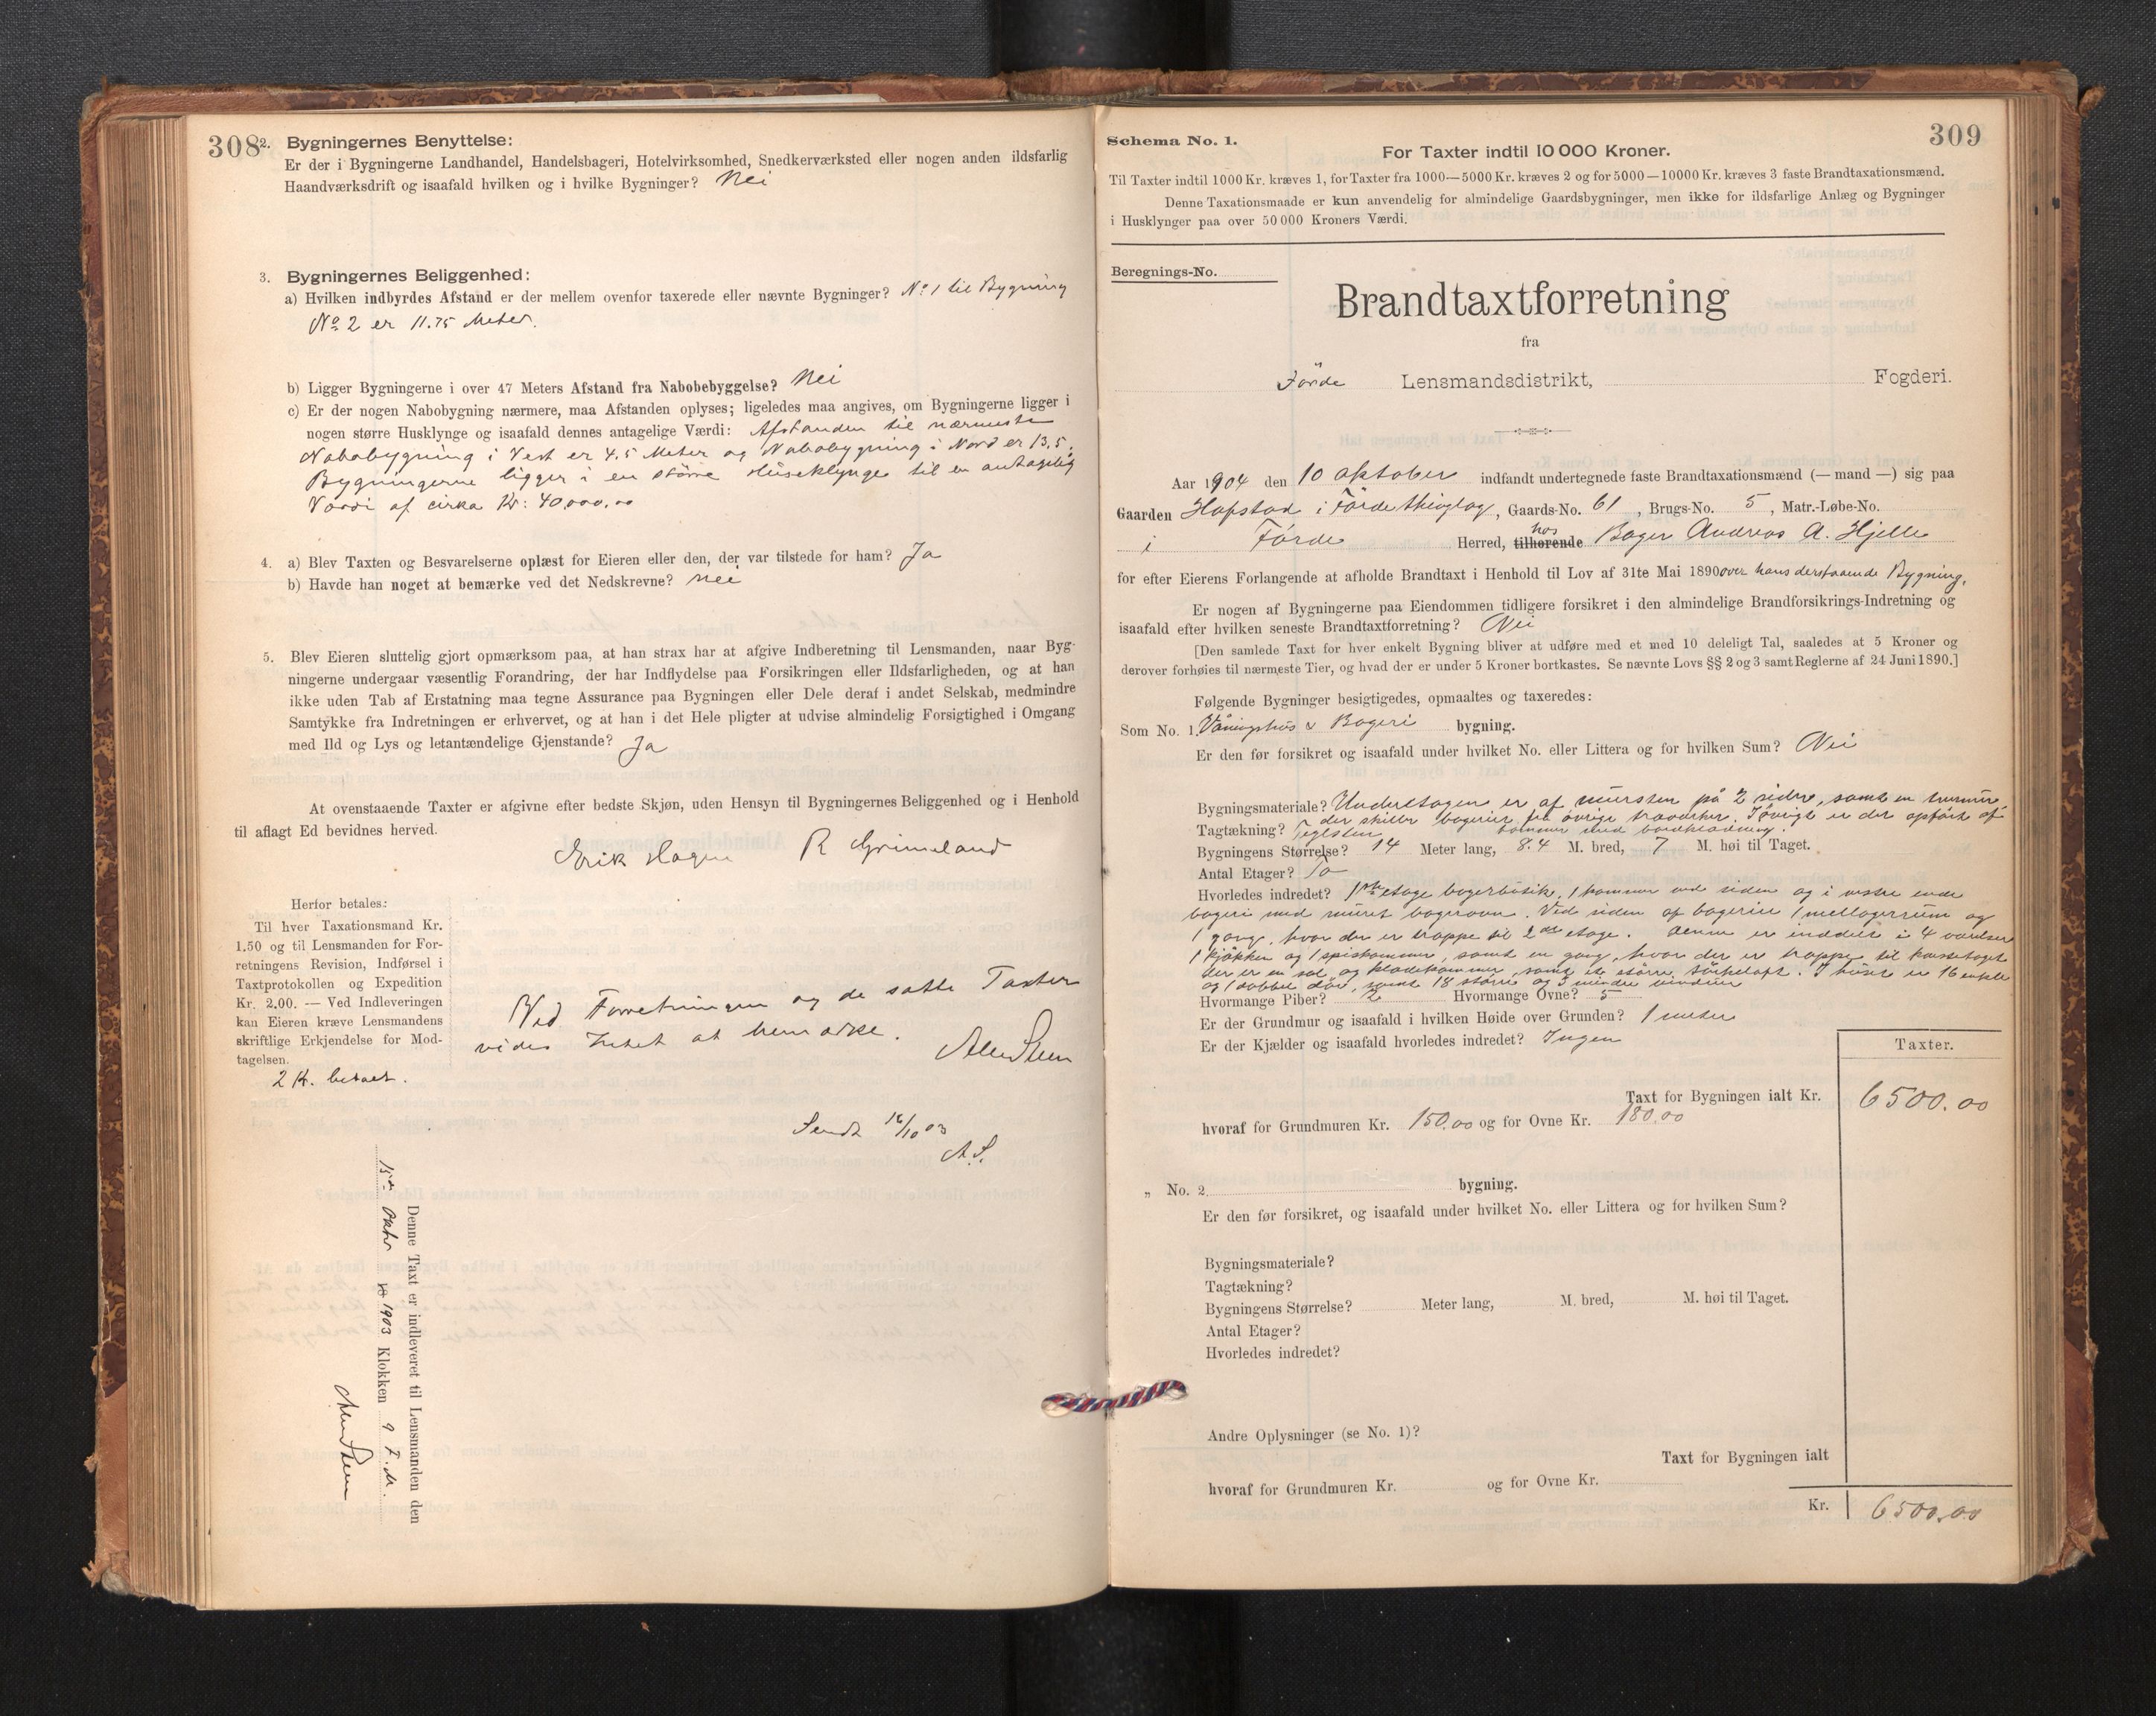 308
2. Bygningernes Benyttelse:
Er der i Bygningerne Landhandel, Handelsbageri, Hotelvirksomhed, Snedkerværksted eller nogen anden ildsfarlig
Haandværksdrift og isaafald hvilken og i hvilke Bygninger? Nei
3. Bygningernes Beliggenhed:
a) Hvilken indbyrdes Afstand er der mellem ovenfor taxerede eller nævnte Bygninger? No 1 til Bygning
No 2 er 11.75 Meter.
b) Ligger Bygningerne i over 47 Meters Afstand fra Nabobebyggelse? Nei
c) Er der nogen Nabobygning nærmere, maa Afstanden oplyses; ligeledes maa angives, om Bygningerne ligger i
nogen større Husklynge og isaafald dennes antagelige Værdi: Afstanden til nærmeste
Nabobygning i Vest er 4.5 Meter og Nabobygning i Nord er 13.5.
Bygningerne ligger i en större Huseklynge til en antagelig
Værdi af cirka Kr: 40,000.00
4. a) Blev Taxten og Besvarelserne oplæst for Eieren eller den, der var tilstede for ham? Ja
b) Havde han noget at bemærke ved det Nedskrevne? Nei
5. Blev Eieren sluttelig gjort opmærksom paa, at han strax har at afgive Indberetning til Lensmanden, naar Byg-
ningerne undergaar væsentlig Forandring, der har Indflydelse paa Forsikringen eller Ildsfarligheden, og at han
ikke uden Tab af Erstatning maa tegne Assurance paa Bygningen eller Dele deraf i andet Selskab, medmindre
Samtykke fra Indretningen er erhvervet, og at han i det Hele pligter at udvise almindelig Forsigtighed i Omgang
med Ild og Lys og letantændelige Gjenstande? Ja
At ovenstaaende Taxter er afgivne efter bedste Skjøn, uden Hensyn til Bygningernes Beliggenhed og i Henhold
til aflagt Ed bevidnes herved.
Erik Hagen R Grimeland
Herfor betales:
Til hver Taxationsmand Kr.
1.50 og til Lensmanden for For-
retningens Revision, Indførsel i
Taxtprotokollen og Expedition
Kr. 2.00. — Ved Indleveringen
kan Eieren kræve Lensmandens
skriftlige Erkjendelse for Mod-
tagelsen.
2 K. betalt.
Ved Forretningen og de satte Taxter
vides Intet at bemærke.
Sendt 16/10 03
A.S.
Denne Taxt er indleveret til Lensmanden den
15de Oktbr 18 1903 Klokken 9 F.M.
309
Schema No. 1.
For Taxter indtil 10 000 Kroner.
Til Taxter indtil 1000 Kr. kræves 1, for Taxter fra 1000—5000 Kr. kræves 2 og for 5000—10000 Kr. kræves 3 faste Brandtaxationsmænd.
Denne Taxationsmaade er kun anvendelig for almindelige Gaardsbygninger, men ikke for ildsfarlige Anlæg og Bygninger
i Husklynger paa over 50 000 Kroners Værdi.
Beregnings-No.
Brandtaxtforretning
fra
Förde Lensmandsdistrikt, Fogderi.
Aar 1904 den 10 oktober indfandt undertegnede faste Brandtaxationsmænd (— mand —) sig paa
Gaarden Hafstad i Förde thinglag, Gaards-No. 61, Brugs-No. 5, Matr.-Løbe-No.
i Förde Herred, tilhørende hos Bager Andreas A. Hjelle
for efter Eierens Forlangende at afholde Brandtaxt i Henhold til Lov af 31te Mai 1890 over hans derstaaende Bygning.
Er nogen af Bygningerne paa Eiendommen tidligere forsikret i den almindelige Brandforsikrings-Indretning og
isaafald efter hvilken seneste Brandtaxtforretning? Nei
[Den samlede Taxt for hver enkelt Bygning bliver at udføre med et med 10 deleligt Tal, saaledes at 5 Kroner og
derover forhøies til nærmeste Tier, og hvad der er under 5 Kroner bortkastes. Se nævnte Lovs §§ 2 og 3 samt Reglerne af 24 Juni 1890.]
Følgende Bygninger besigtigedes, opmaaltes og taxeredes:
Som No. 1. Våningshus & Bageri bygning.
Er den før forsikret og isaafald under hvilket No. eller Littera og for hvilken Sum? Nei
Bygningsmateriale? Underetagen er af mursten på 2 sider, samt en
der skiller bageriet fra övrige træværker. Iövrigt er det opført af
Tagtækning? Teglsten tömmer med bordklædning.
Bygningens Størrelse? 14 Meter lang, 8.4 M. bred, 7 M. høi til Taget.
Antal Etager? To
Hvorledes indredet? 1ste etage bagerbutik, 1 kammer ved siden og i vestre ende
bageri med muret bagerovn. Ved siden af bageriet 1 mellagerrum og
1 gang, hvor der er trappe til 2den etage. Denne er inddelt i 4 værelser
1 kjökken og 1 spiskammer, samt en gang, hvor der er trappe til
der er en sal og klædekammer, samt et större törkeloft. I huset er 16 enkle
og 1 dobbel dör, samt 18 större og 3 mindre vinduer
Hvormange Piber? 2 Hvormange Ovne? 5
Er der Grundmur og isaafald i hvilken Høide over Grunden? 1 meter
Er der Kjælder og isaafald hvorledes indredet? Ingen
Taxter.
Taxt for Bygningen ialt Kr. 6500.00
hvoraf for Grundmuren Kr. 150,00 og for Ovne Kr. 180,00
„ No. 2 bygning.
Er den før forsikret, og isaafald under hvilket No. eller Littera og for hvilken Sum?
Bygningsmateriale?
Tagtækning?
Bygningens Størrelse? Meter lang, M. bred, M. høi til Taget.
Antal Etager?
Hvorledes indredet?
Andre Oplysninger (se No. 1)?
Taxt for Bygningen ialt
hvoraf for Grundmuren Kr. og for Ovne Kr.
Kr. 6500.00